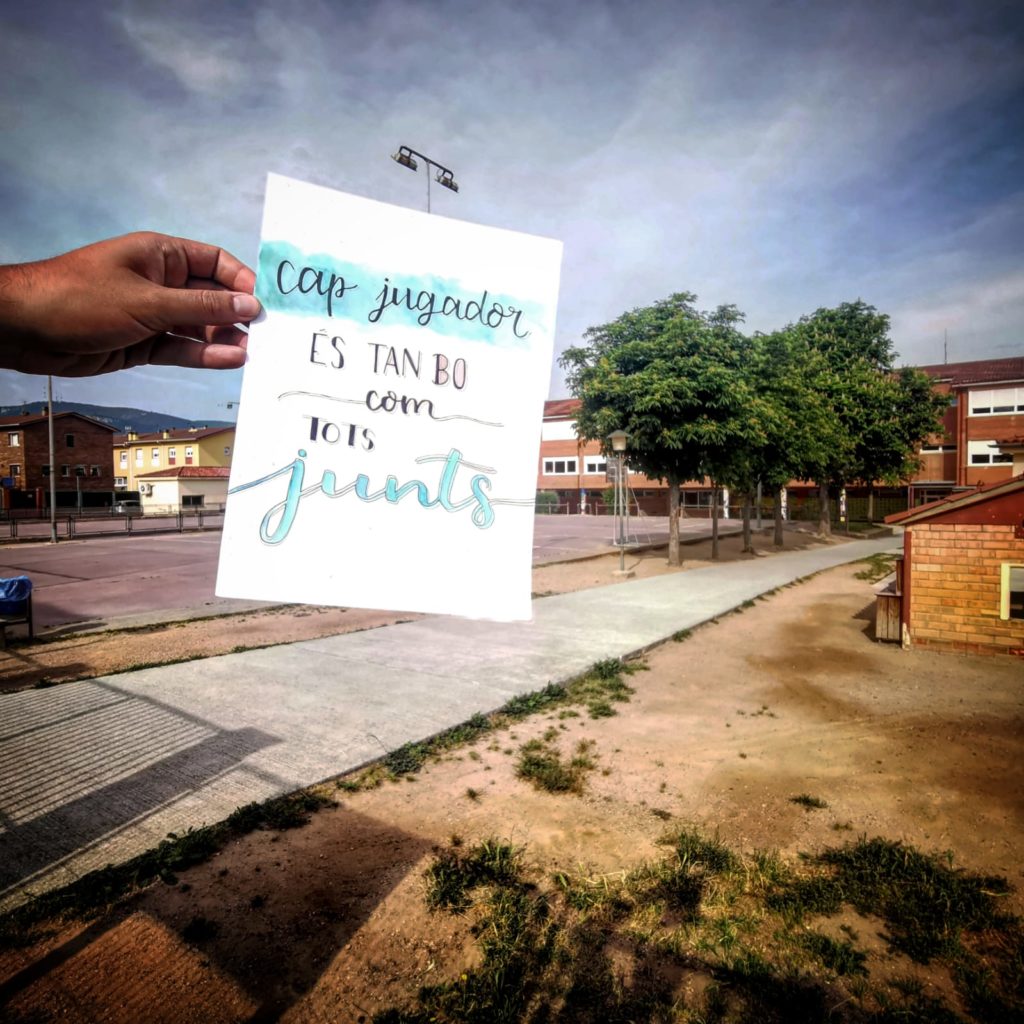 cap jugador
ÉS TAN BO
com
TOTS
junts